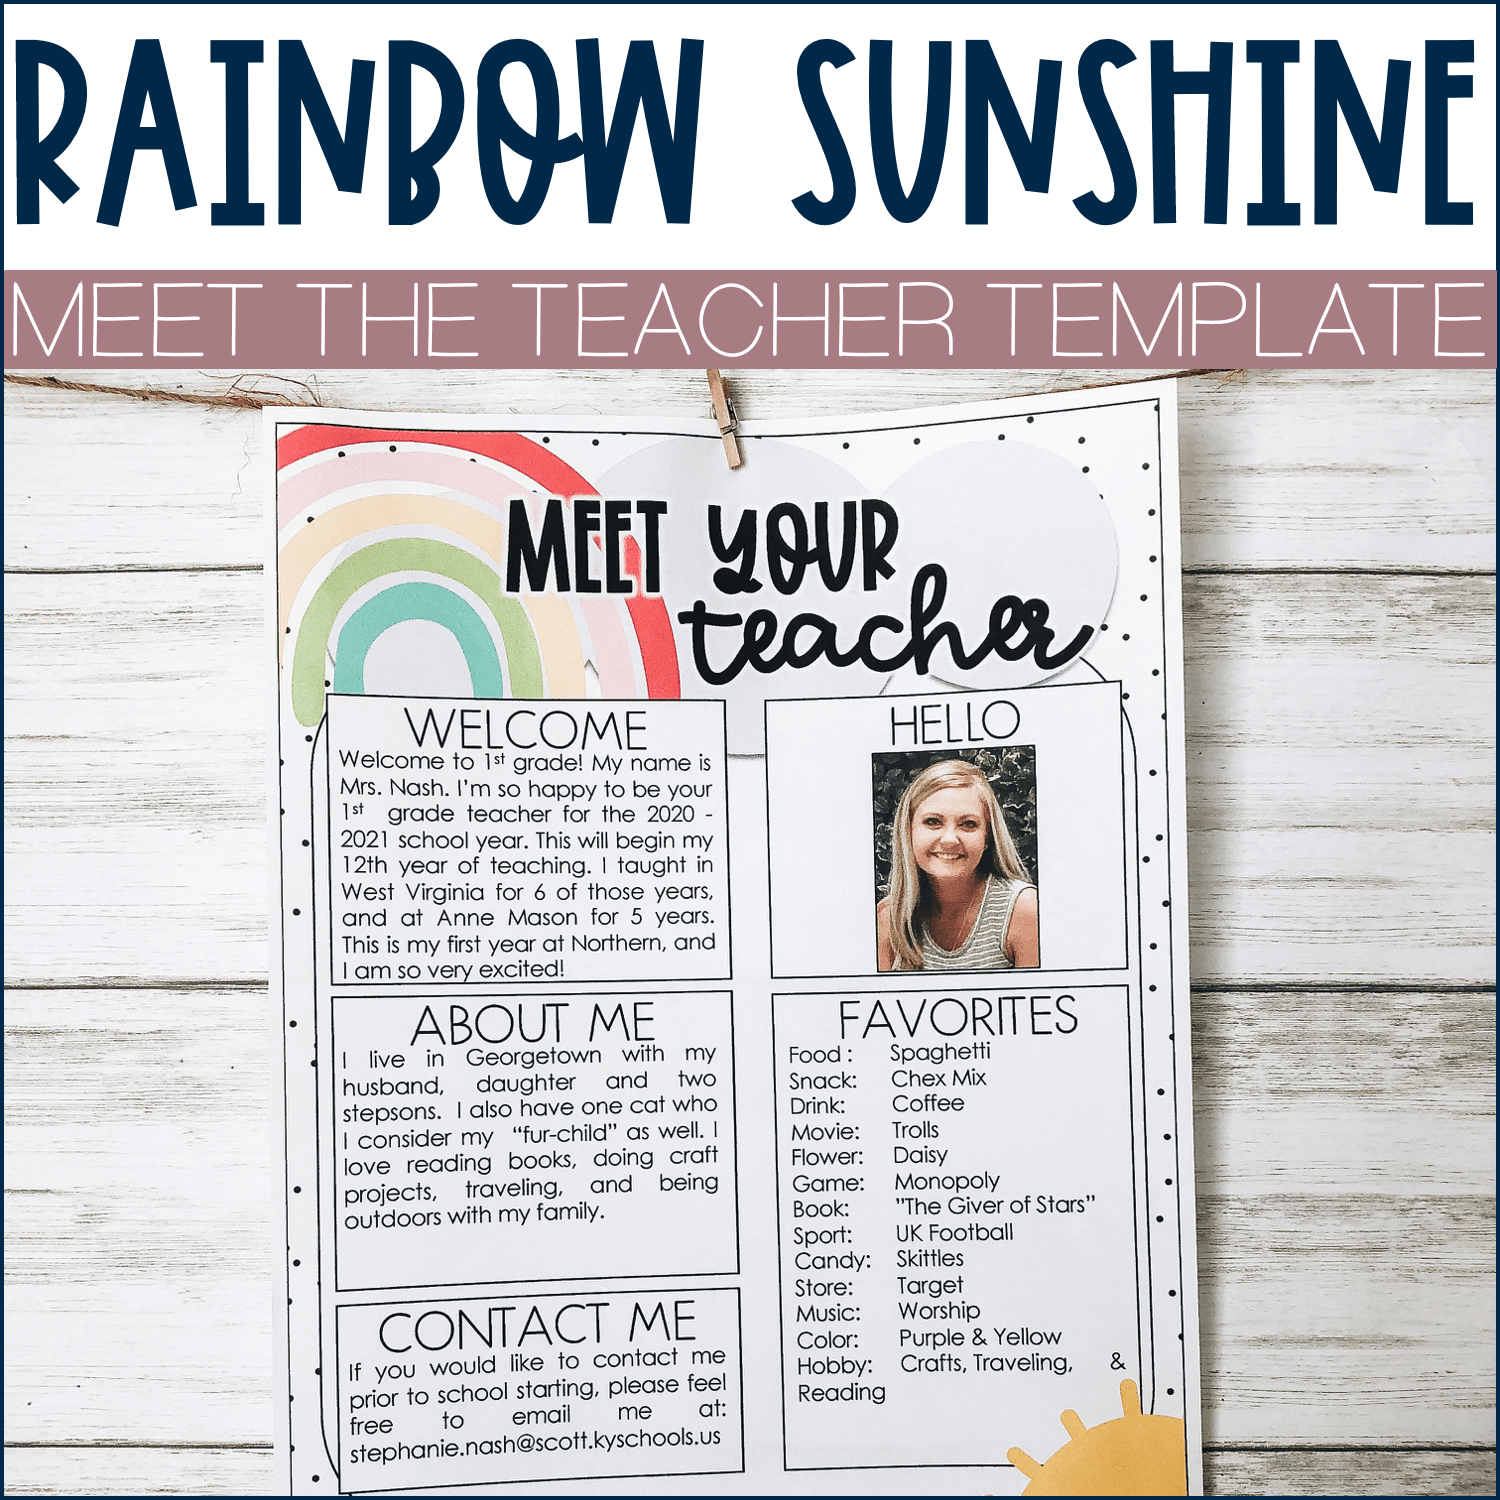 RAINBOW SUNSHINE
MEET THE TEACHER TEMPLATE
MEET YOUR
teacher
WELCOME
Welcome to 1st grade! My name is
Mrs. Nash. I'm so happy to be your
1st grade teacher for the 2020 -
2021 school year. This will begin my
12th year of teaching. I taught in
West Virginia for 6 of those years,
and at Anne Mason for 5 years.
This is my first year at Northern, and
I am so very excited!
HELLO
ABOUT ME
I live in Georgetown with my
husband, daughter and two
stepsons. I also have one cat who
I consider my "fur-child" as well. I
love reading books, doing craft
projects, traveling, and being
outdoors with my family.
FAVORITES
Food : Spaghetti
Snack: Chex Mix
Drink: Coffee
Movie: Trolls
Flower: Daisy
Game: Monopoly
Book: "The Giver of Stars"
Sport: UK Football
Candy: Skittles
Store: Target
Music: Worship
Color: Purple & Yellow
Hobby: Crafts, Traveling, &
Reading
CONTACT ME
If you would like to contact me
prior to school starting, please feel
free to email me at:
stephanie.nash@scott.kyschools.us